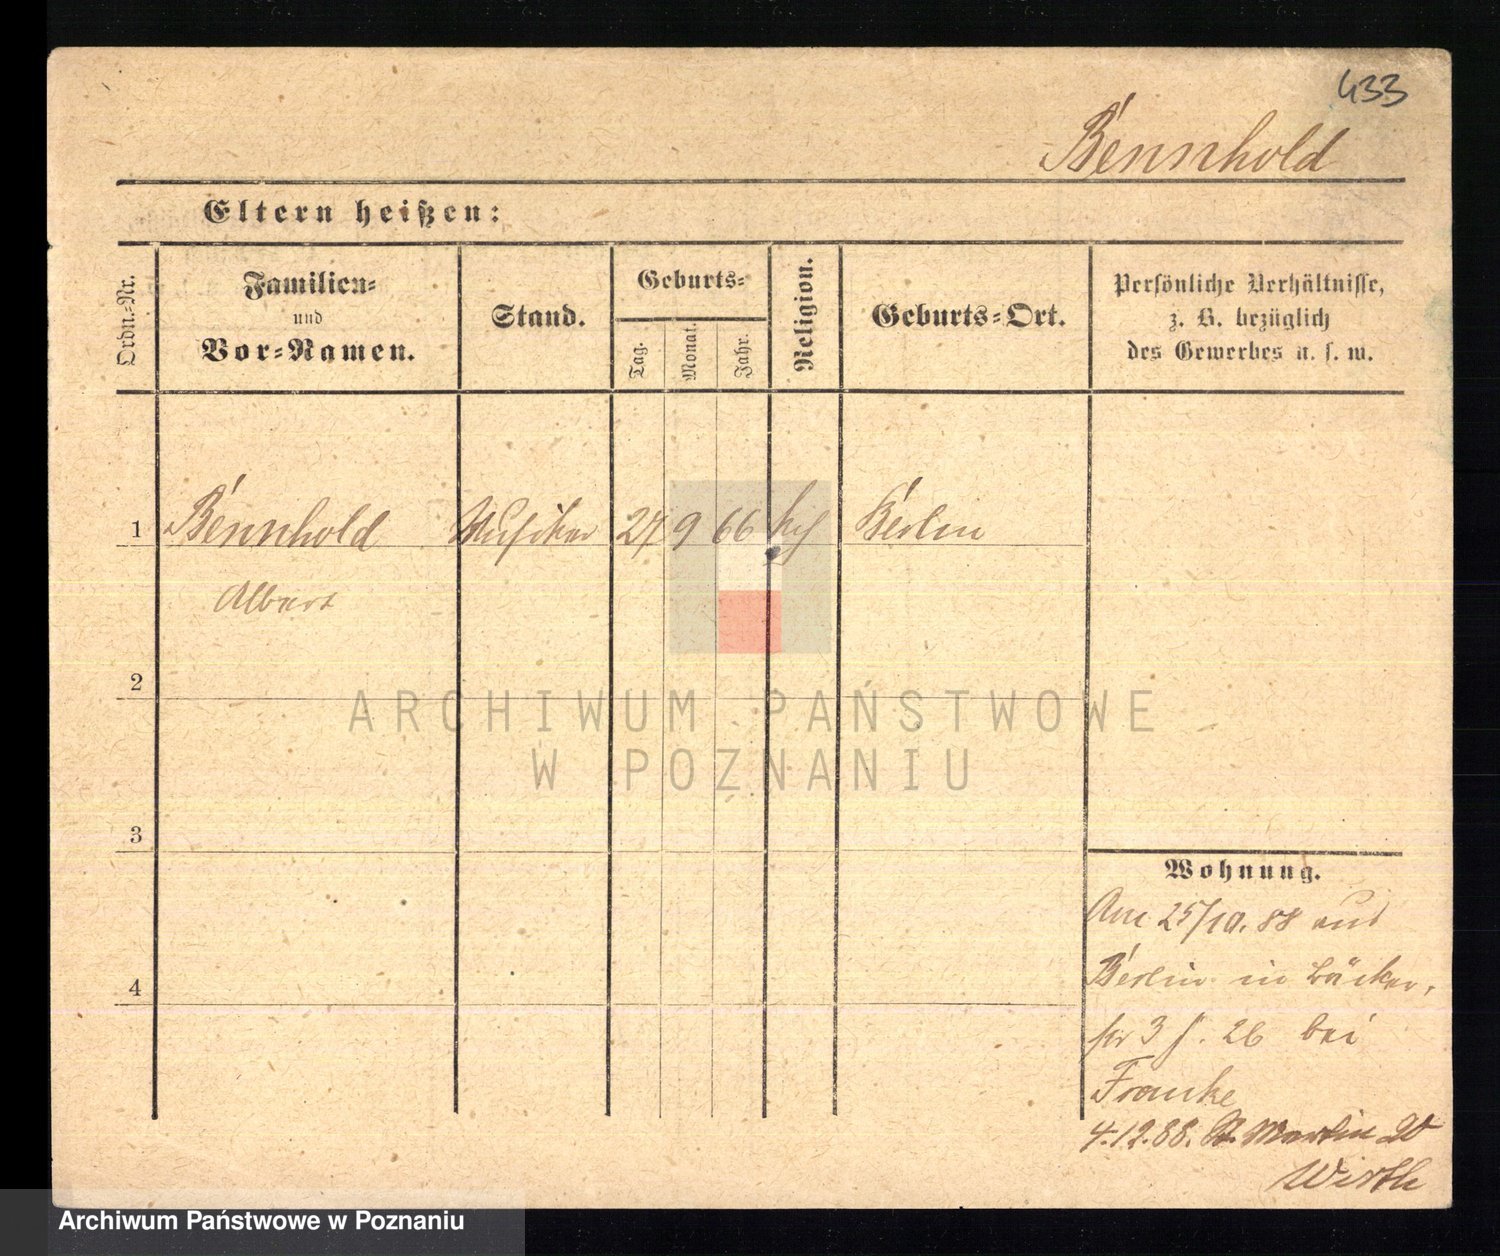 433
Bennhold
Eltern heißen:
Ordn.-Nr.
Familien-
und
Vor-Namen.
Stand.
Geburts-
Tag.
Monat.
Jahr.
Religion.
Geburts-Ort.
Persönliche Verhältnisse,
z. B. bezüglich
des Gewerbes u. s. w.
1 Bennhold Musiker 9 66 Berlin
Albert
2
3
4
Wohnung.
Am 25/10. 88 aus
Berlin in Bäcker-
str 26 bei
Franke
4.12.88. St. Martin
Wirth
ARCHIWUM PAŃSTWOWE
W POZNANIU
Archiwum Państwowe w Poznaniu